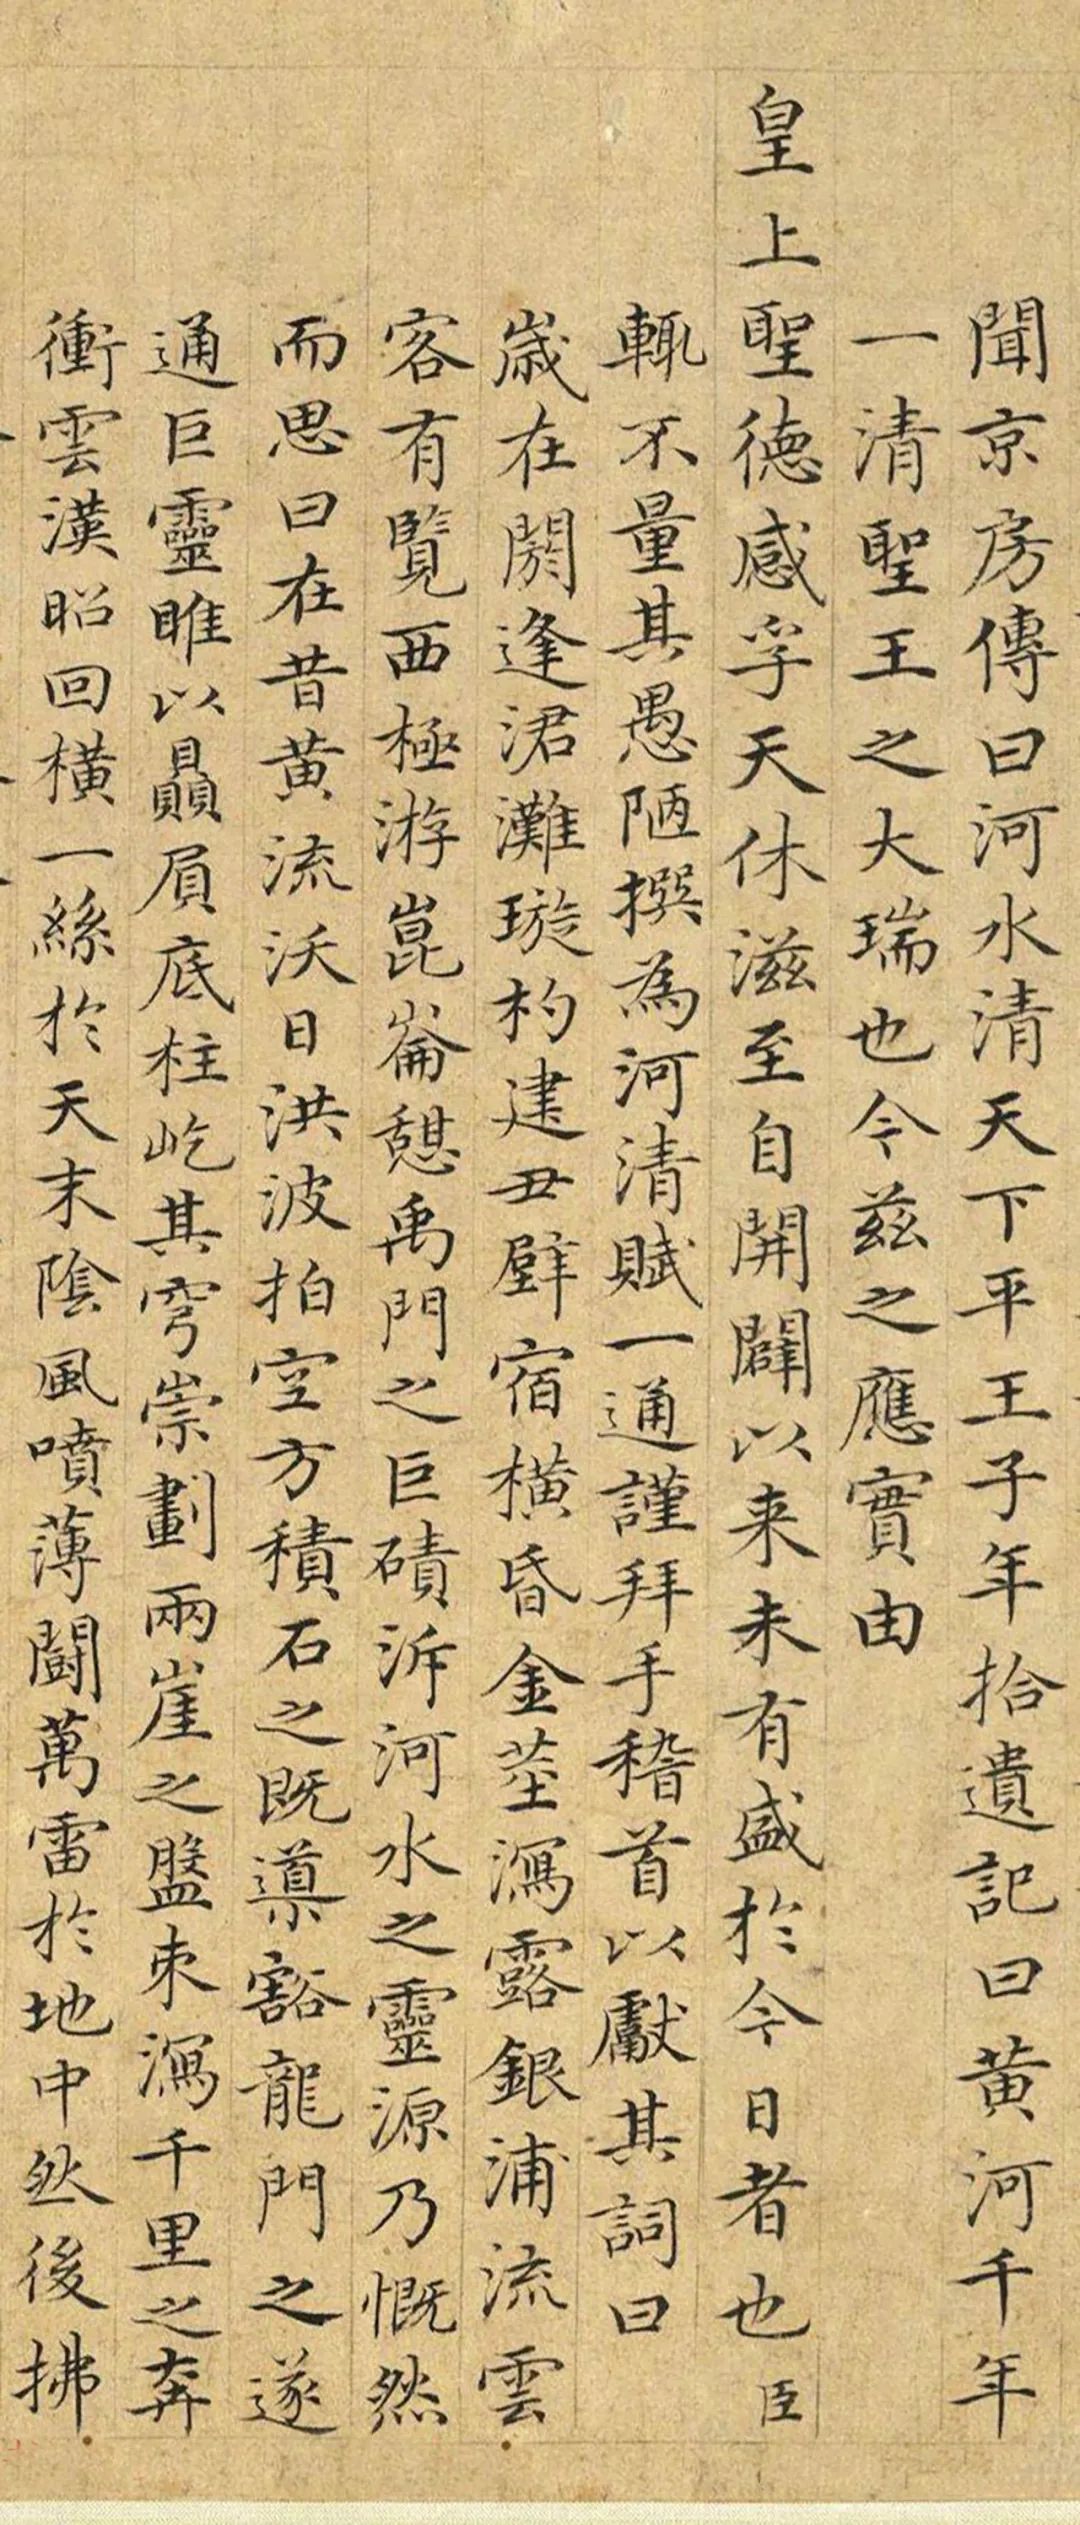 聞京房傳曰河水清天下平王子年拾遺記曰黄河千年
一清聖王之大瑞也今茲之應實由
皇上聖德感孚天休滋至自開闢以来未有盛於今日者也臣
輒不量其愚陋撰為河清賦一通謹拜手稽首以獻其詞曰
歲在閼逢涒灘璇杓建丑壁宿横昏金莖瀉露銀浦流雲
客有覽西極游崑崙憩禹門之巨磧泝河水之靈源乃慨然
而思曰在昔黄流沃日洪波拍空方積石之既導豁龍門之遂
通巨靈睢以贔屓底柱屹其穹崇劃兩崖之盤束瀉千里之奔
衝雲漢昭回横一絲於天末陰風噴薄鬭萬雷於地中然後拂